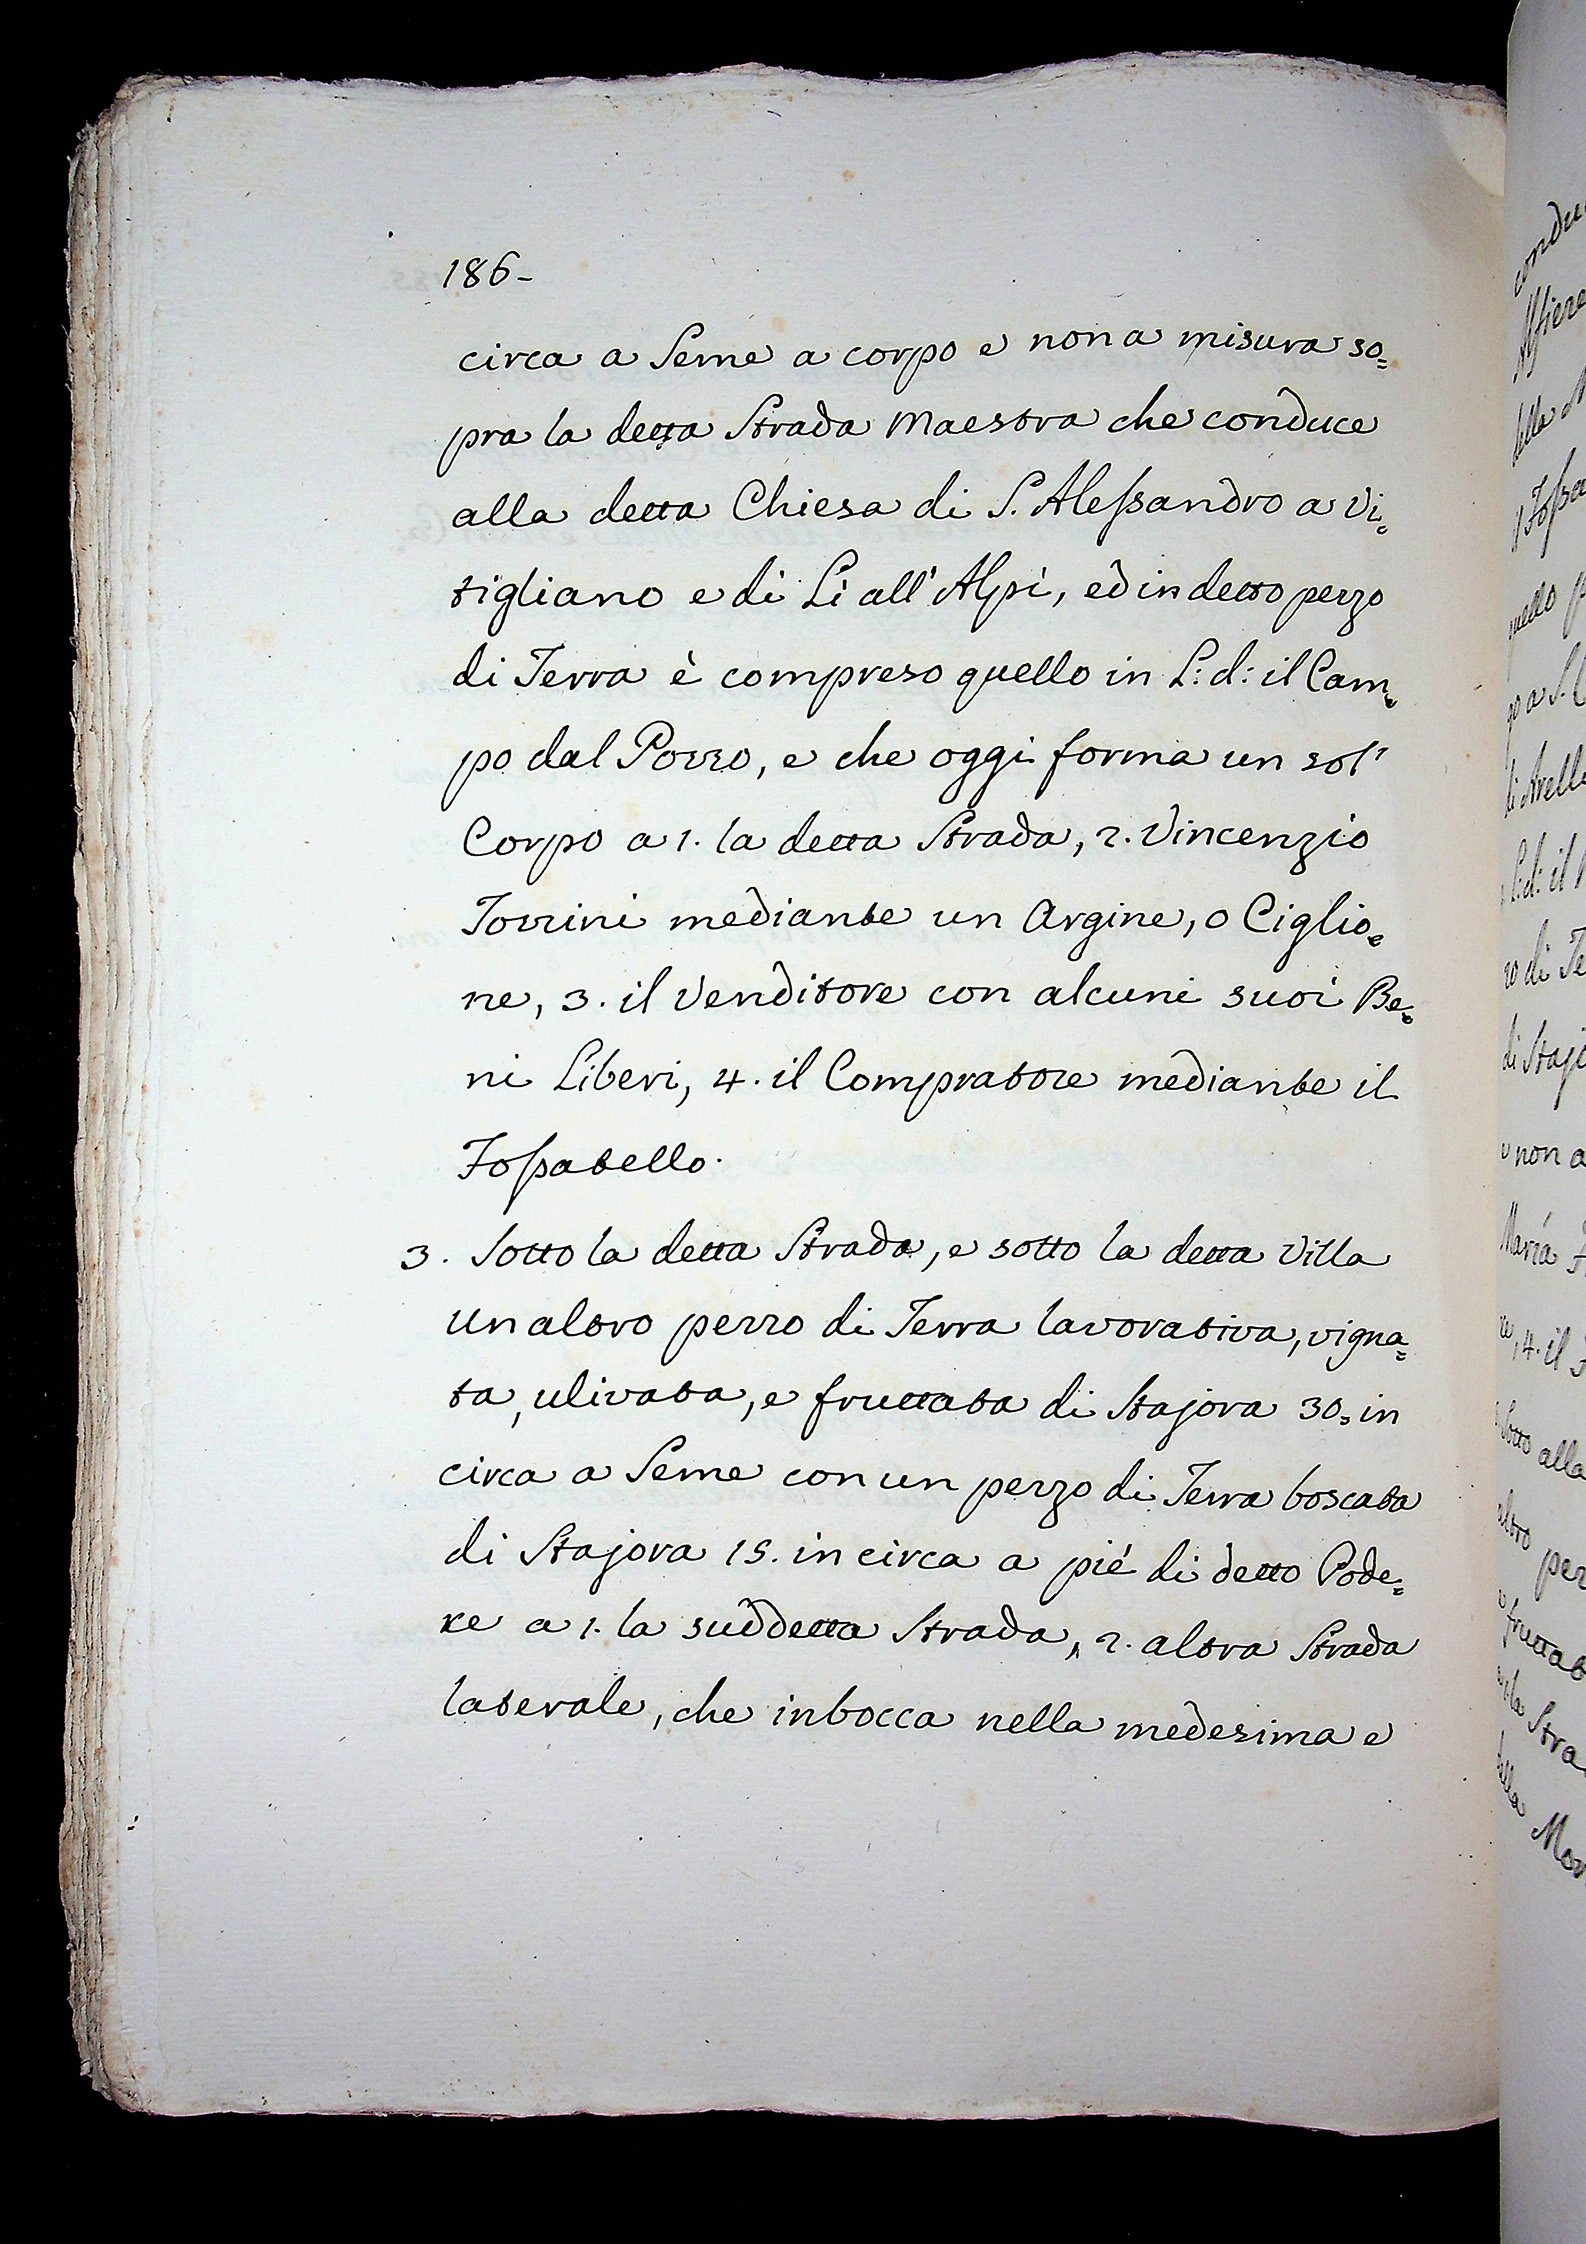 186-
circa a Seme a corpo e non a misura so=
pra la detta Strada Maestra che conduce
alla detta Chiesa di S. Alessandro a Vi=
tigliano e di Li all'Alpi, ed in detto pezzo
di Terra è compreso quello in L: d: il Cam=
po dal Pozzo, e che oggi forma un sol'
Corpo a 1. la detta Strada, 2. Vincenzio
Torrini mediante un Argine, o Ciglio=
ne, 3. il Venditore con alcuni suoi Be=
ni Liberi, 4. il Compratore mediante il
Fossatello.
3. Sotto la detta Strada, e sotto la detta Villa
un altro pezzo di Terra lavorativa, vigna=
ta, ulivata, e fruttata di Stajora 30= in
circa a Seme con un pezzo di Terra boscata
di Stajora 15. in circa a pié di detto Pode=
re a 1. la suddetta Strada, 2. altra Strada
laterale, che inbocca nella medesima e